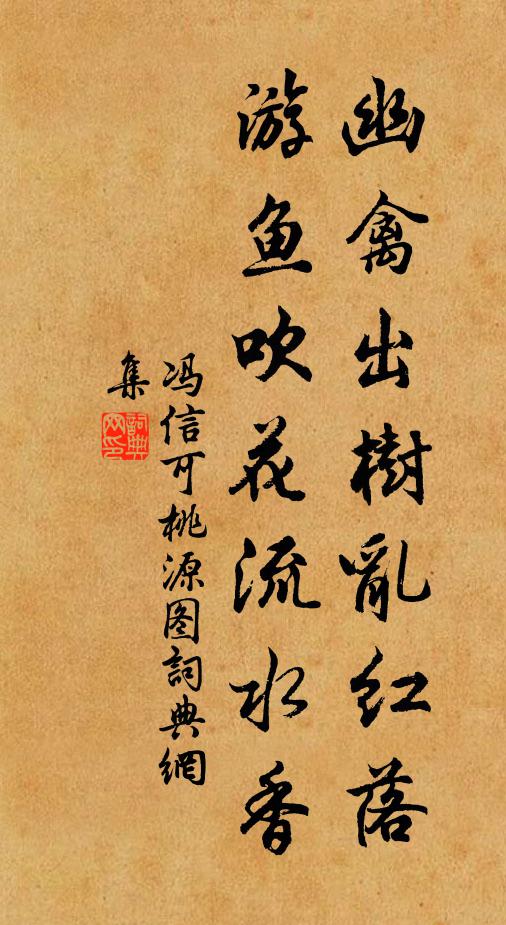 幽禽出樹亂紅落
游鱼吹花流水香
冯信可桃源图詞典網
集
詞典网印